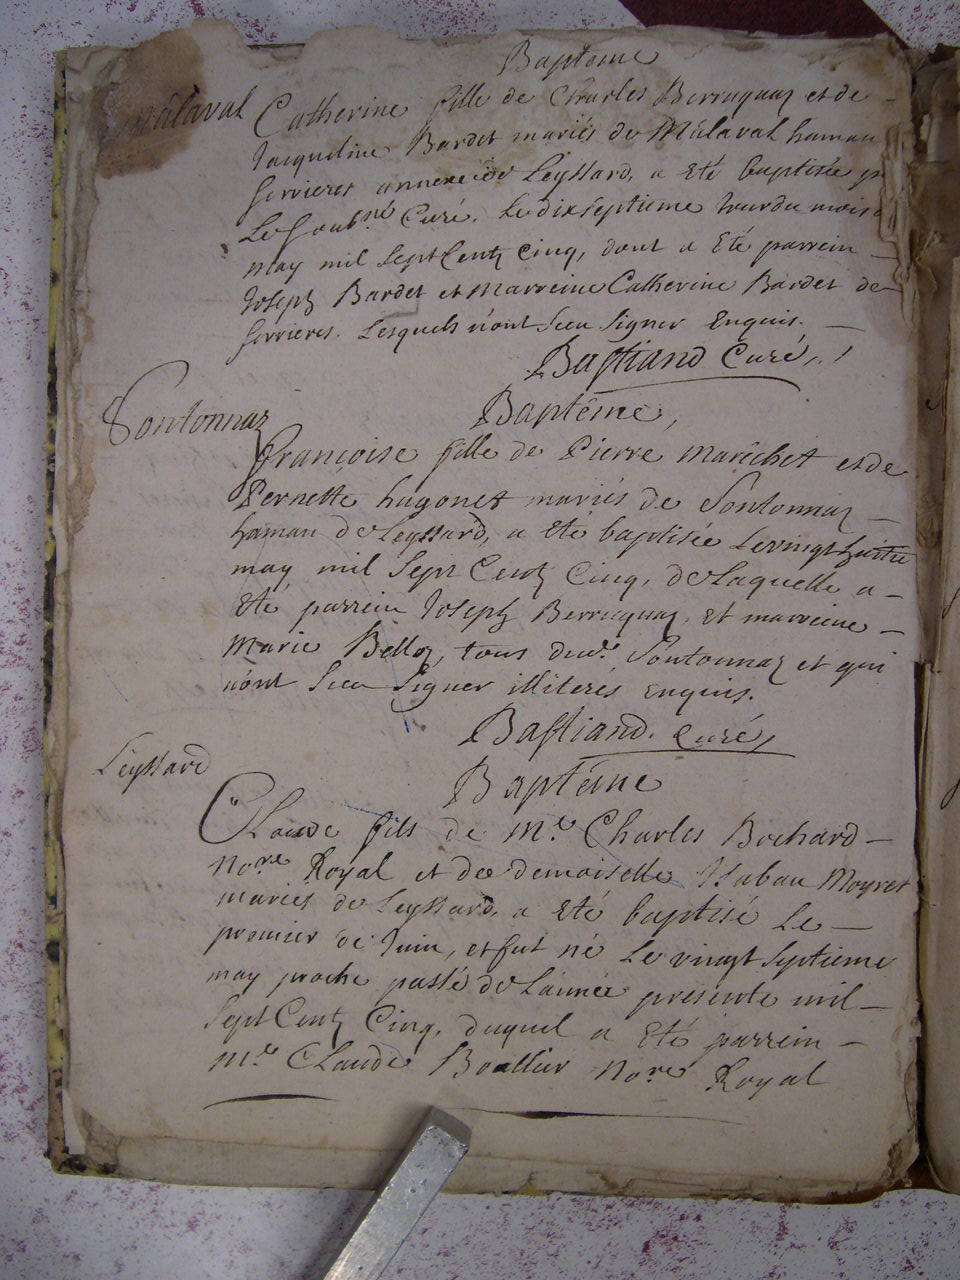 Bapteme
Malaval
Catherine fille de Charles Berruquaz et de
Jacqueline Bardet mariés de Malaval hamau
serrieres annexe de Leyssard, a Eté baptisée p
Le soub.né Curé. Le dixseptieme Jour du mois
may mil sept Centz Cinq, dont a Eté parrein
Joseph Bardet et Marreine Catherine Bardet de
serrieres. Lesquels n'ont sceu signer Enquis.
Bastiand Curé,
Baptême,
Sontonnaz
françoise fille de Pierre Maréchet et de
Pernette hugonet mariés de Sontonnaz
hamau de Leyssard, a Eté baptisée Le vingt huitie
may mil sept Centz Cinq, de Laquelle a
Eté parrein Joseph Berruquaz, et marreine
Marie Belloz, tous dud. Sontonnaz et qui
n'ont sceu signer illiteres enquis.
Bastiand. Curé,
Leyssard
Baptême
Claude fils de M.e Charles Bochard
No.re Royal et de demoiselle Isabau Moyret
mariés de Leyssard, a Eté baptisé Le
premier de Juin, et fut né Le vingt septieme
may proche passé de L'année présente mil
sept Centz Cinq, duquel a Eté parrein
M.e Claude Boallier No.re Royal